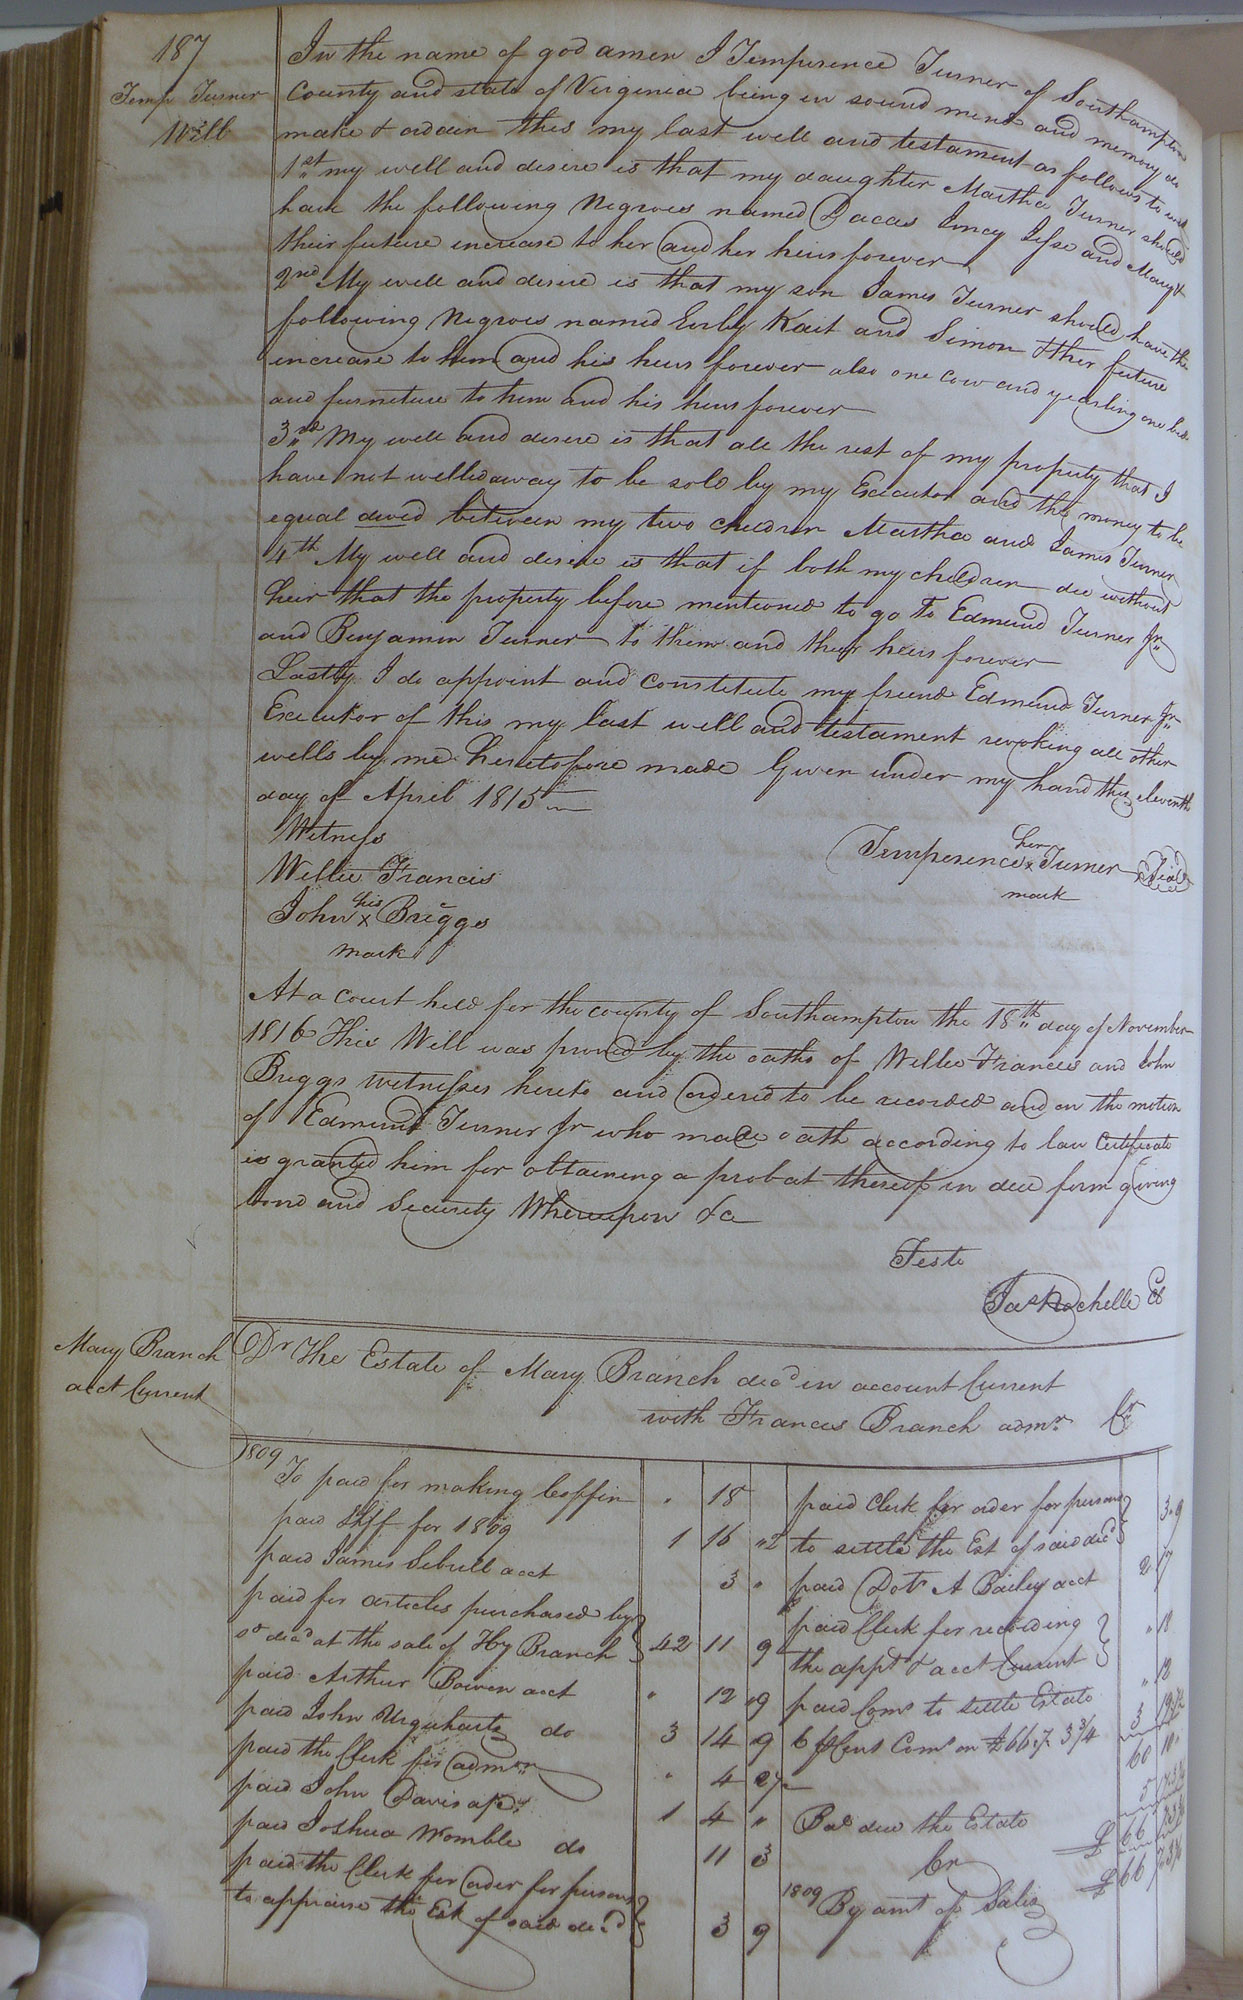 187
Temp Turner
Will
In the name of god amen I Temperence Turner of Southampton
County and state of Virginia being in sound mind and memory do
make & ordain this my last will and testament as follows to wit
1st my will and desire is that my daughter Martha Turner should
have the following Negroes named Dacas Jincy Jesse and Mary &
their future increase to her and her heirs forever
2nd My will and desire is that my son James Turner should have the
following Negroes named Kait and Simon & ther future
increase to him and his heirs forever also one cow and yearling one bed
and furniture to him and his heirs forever
3rd My will and desire is that all the rest of my property that I
have not willed away to be sold by my Executor and the money to be
equal divid between my two children Martha and James Turner
4th My will and desire is that if both my children die without
heir that the property before mentioned to go to Edmund Turner Jr
and Benjamin Turner to them and their heirs forever
Lastly I do appoint and constitute my friend Edmund Turner Jr
Executor of this my last will and testament revoking all other
wills by me heretofore made Given under my hand this eleventh
day of April 1815
Witness
Willie Francis
John his x Briggs
mark
Temperence her x Turner Seal
mark
At a Court held for the county of Southampton the 18th day of November
1816 This Will was proved by the oaths of Willie Francis and John
Briggs witnesses hereto and ordered to be recorded and on the motion
of Edmund Turner Jr who made oath according to law Certificate
is granted him for obtaining a probat thereof in due form giving
bond and security Whereupon &c
Teste
Jas Rochelle Cl
Mary Branch
acct Current
Dr The Estate of Mary Branch decd in account Current
with Frances Branch admr. Cr
1809
To paid for making Coffin " 18
paid Shff for 1809 1 16 "2
paid James Sebrell acct 3 "
paid for articles purchased by
sd decd at the sale of Hy Branch 42 11 9
paid Arthur Bowen acct " 12 "9
paid John Urquharts do 3 14 9
paid the Clerk for admon " 4
paid John Davis 1 4 "
paid Joshua Womble do 11 3
paid the Clerk for order for persons
to appraise the Est of said decd 3 9
paid Clerk for order for persons
to settle the Est of said decd 3.9
paid Dotr A Bailey acct 2 17
paid Clerk for recording
the appt & acct Current " 18
paid Coms to settle Estate " 18
6 pCent Coms on £66.7 3 3/4 3
60
Bal due the Estate 5
£ 66
Cr
1809
By amt of Sales £ 66 7 3 3/4